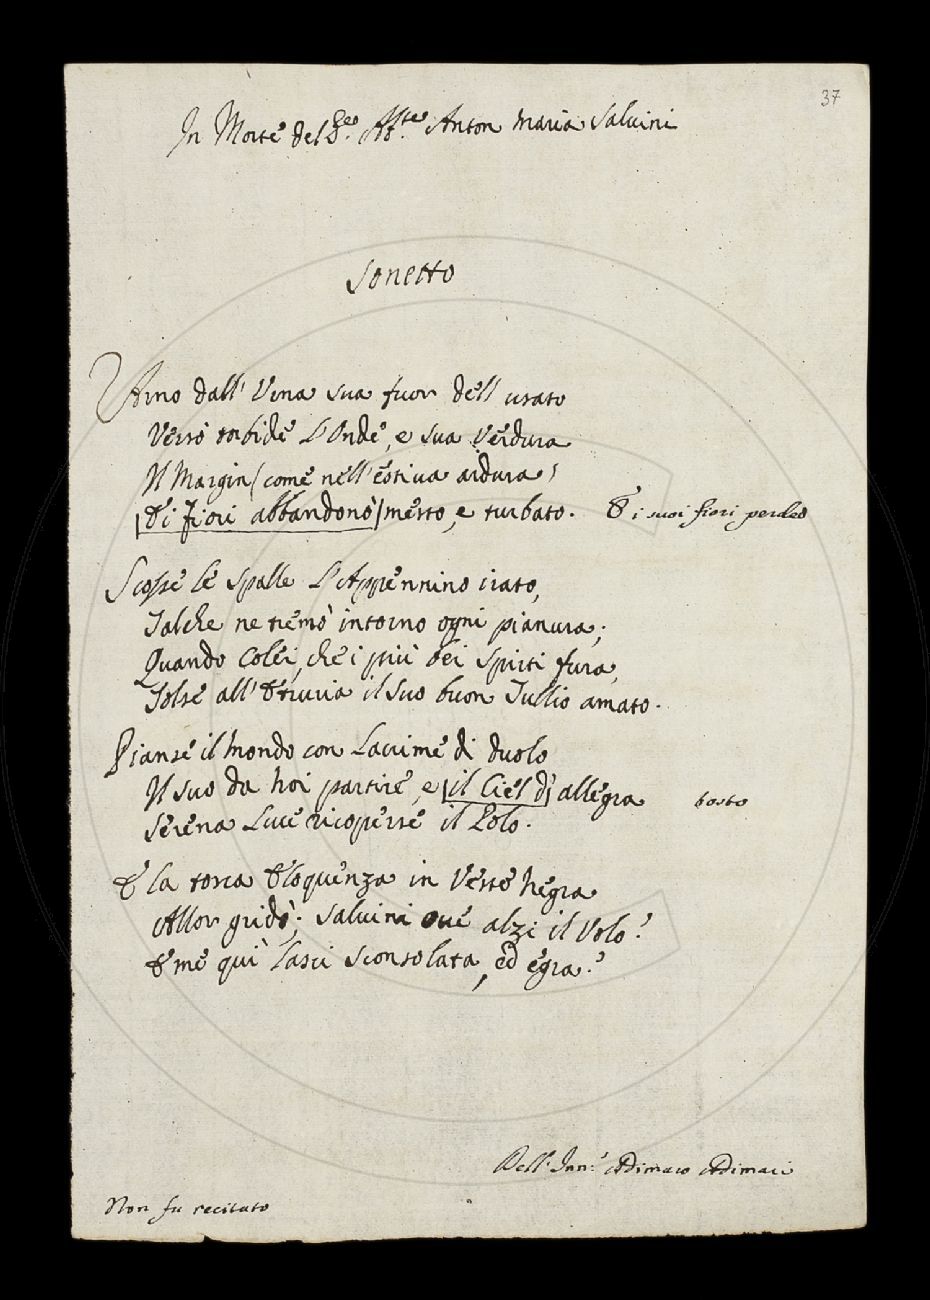 37
In Morte del S.re Ab.te Anton Maria Salvini
Sonetto
L'Arno dall' Vrna sua fuor dell' usato
Versò torbide L'Onde, e sua Verdura
Il Margin (come nell' estiva ardura)
E i Fiori abbandonò mesto, e turbato. E i suoi fiori perdeo
Scosse le Spalle L'Appennino irato,
Talche ne tremò intorno ogni pianura;
Quando Colei, che i più bei Spirti fura,
Tolse all' Etruria il suo buon Tullio amato.
Pianse il Mondo con Lacrime di duolo
Il suo da Noi partire, e il Ciel d' allegra tosto
Serena Luce ricoperse il Polo.
E la tosca Eloquenza in Veste Negra
Allor gridò; Salvini ove alzi il Volo?
E me quì lasci sconsolata, ed egra?
Dell' Inn.º Adimaro Adimari
Non fu recitato